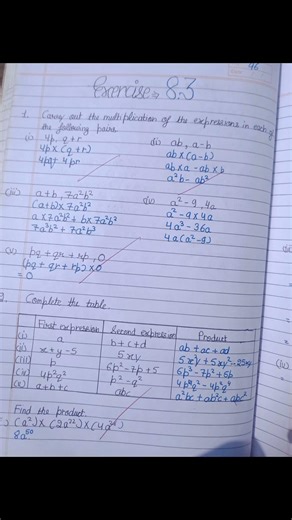 46
Exercise 8.3
1. Carry out the multiplication of the expressions in each of
the following pairs.
(i) 4p, q+r
4p×(q+r)
4pq+4pr
(ii) ab, a-b
ab×(a-b)
ab×a-ab×b
a²b-ab²
(iii) a+b, 7a²b²
(a+b)×7a²b²
a×7a²b²+b×7a²b²
7a³b²+7a²b³
(iv) a²-9, 4a
a²-9×4a
4a³-36a
4a(a²-9)
(v) pq+qr+rp, 0
(pq+qr+rp)×0
=0
2. Complete the table.
First expression Second expression Product
(i) a b+c+d ab+ac+ad
(ii) x+y-5 5xy 5x²y+5xy²-25xy
(iii) p 6p²-7p+5 6p³-7p²+5p
(iv) 4p²q² p²-q² 4p⁴q²-4p²q⁴
(v) a+b+c abc a²bc+ab²c+abc²
Find the product.
(a²)×(2a²²)×(4a²⁶)
8a⁵⁰